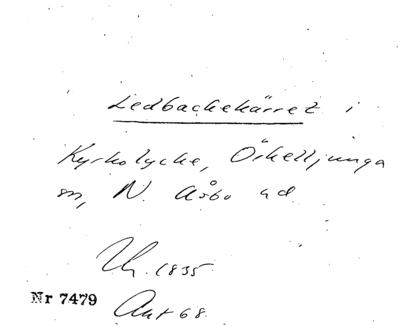 Ledbackekärret i
Kyrkolycke, Örkelljunga
sn, N. Åsbo hd
Uh. 1835
Nr 7479
Akt 68.